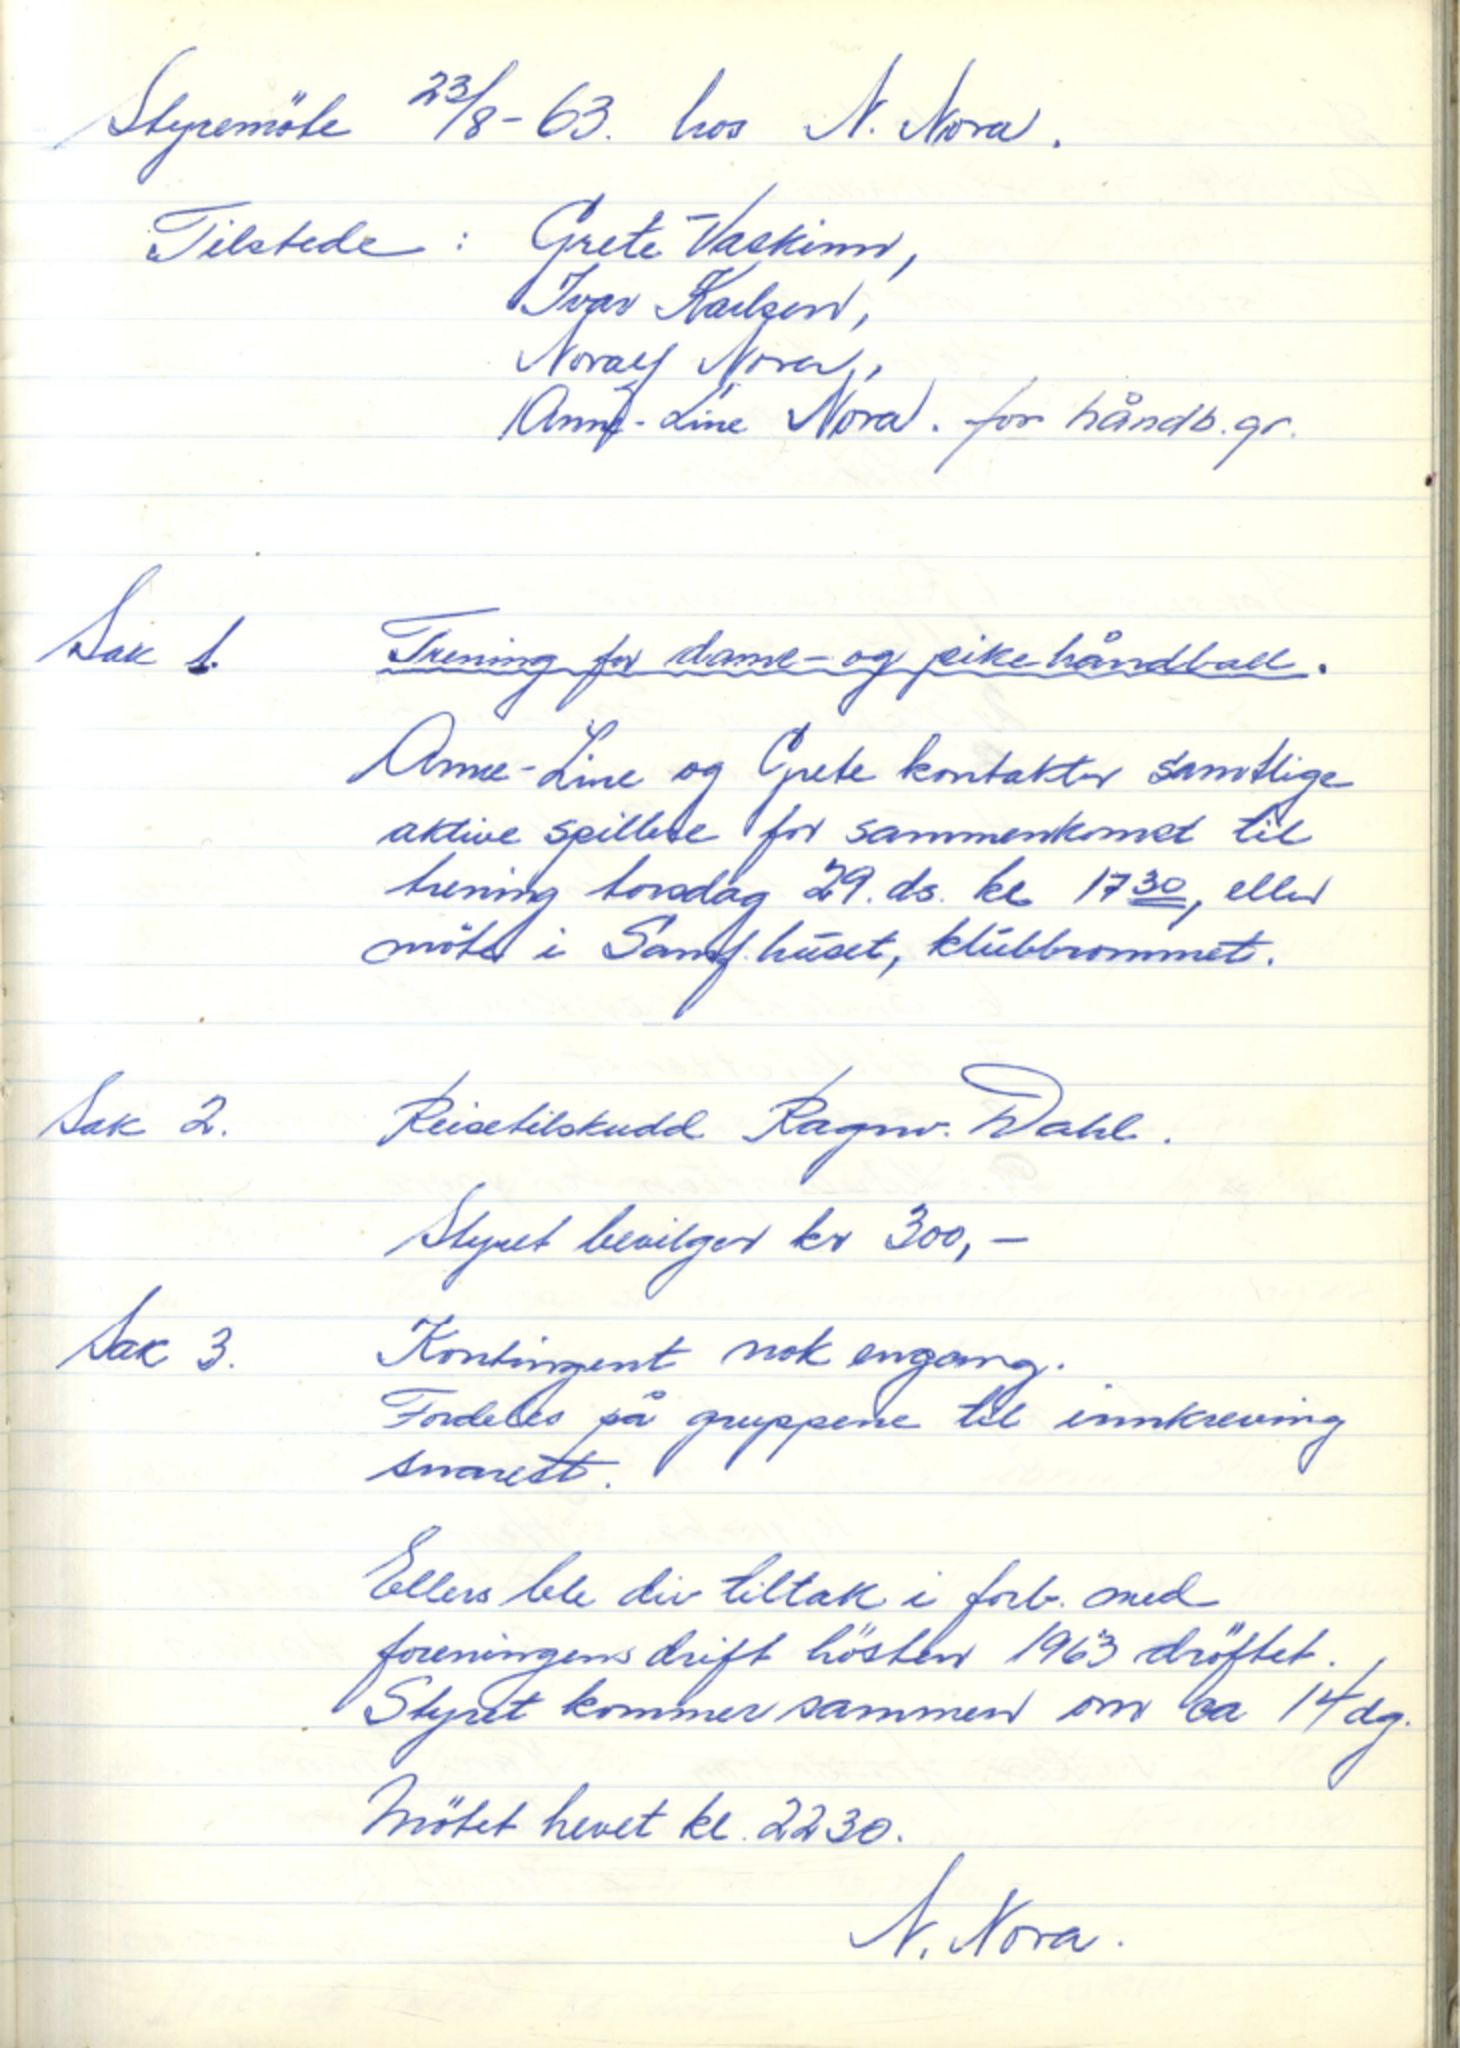 Styremöte 23/8-63. hos N. Nora.
Tilstede : Grete Vaskinn,
Ivar Karlsen,
Noralf Nora,
Anne-Line Nora. for håndb.gr.
Sak 1. Trening for dame- og pikehåndball.
Anne-Line og Grete kontakter samtlige
aktive spillere for sammenkomst til
trening torsdag 29. ds. kl 17 30, eller
möte i Samf.huset, klubbrommet.
Sak 2. Reisetilskudd Ragnv. Dahl.
Styret bevilger kr 300,-
Sak 3. Kontingent nok engang.
Fordeles på gruppene til innkreving
snarest.
Ellers ble div tiltak i forb. med
foreningens drift hösten 1963 dröftet.
Styret kommer sammen om ca 14 dg.
Mötet hevet kl. 2230.
N. Nora.